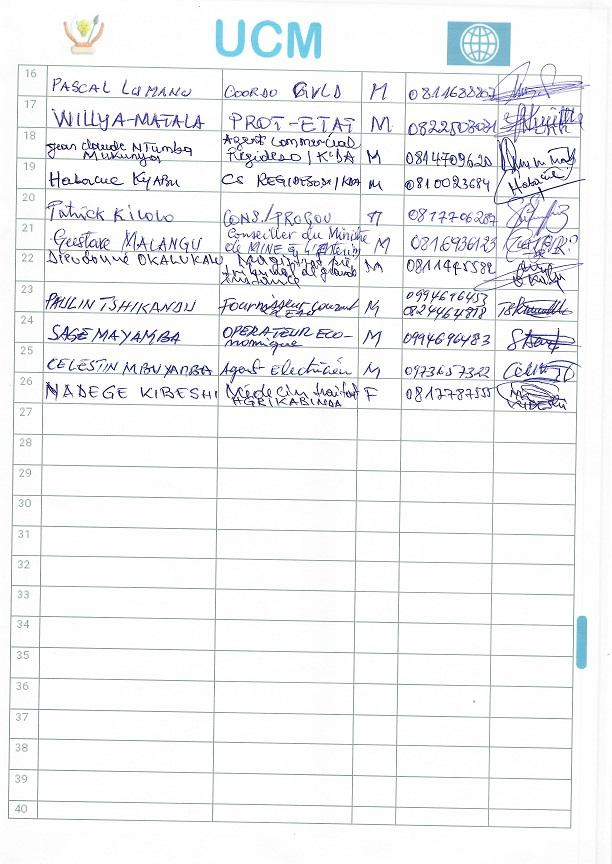 UCM
16 PASCAL LUMANU COORDO M
17 WILLY A-MATALA PROT-ETAT M
18 Jean Claude NTUMBA Agent Commercial
Mukunya Regideso / KDA M 0814709620
19 Habacuc KYABU CS REGIDESO / KDA M 0810023684 Habacuc
20 Patrick KILOLO CONS./PROGOU M 0817706287
21 Gustave MALANGU Conseiller du Ministre
de MINE M 0816936123
22 Dieudonné OKALUKAW M 0811445582
tribunal de grande
instance
23 PAULIN TSHIKANDU Fournisseur M 0994616453
0824464818
24 SAGE MAYAMBA OPERATEUR ECO- M 0994696483
nomique
25 CELESTIN MBUYAMBA Agent Electricien M 0973657322
26 NADEGE KIBESHI Médecin traitant F 0817787555
27
28
29
30
31
32
33
34
35
36
37
38
39
40